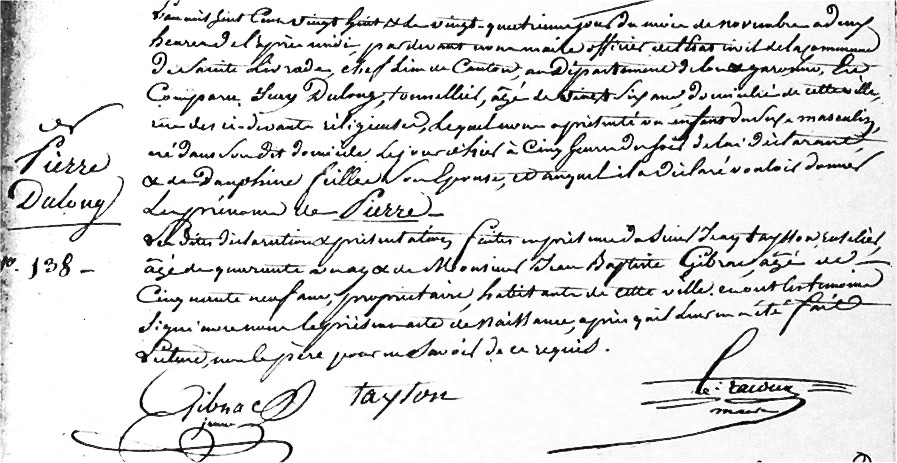 L'an mil huit Cent vingt huit & le vingt-quatrieme jour du mois de novembre a deux
heures de l'après midi, par devant nous maire officier de l'état civil de la commune
de Sainte Livrade, chef lieu de Canton, au Département de lot & garonne, Est
Comparu Jean Dulong, tonnellier, âgé de vingt Six ans, domicilié de cette ville,
rue des ci-devants religieuses, Lequel nous a présenté un enfant du Sexe masculin,
né dans Son dit domicile Le jour d'hier à Cinq heures du Soir de lui déclarant,
& de Dauphine fillée Son Epouse, et auquel il a déclaré vouloir donner
Le prénom de Pierre
Les dites déclaration & présentation faites en présence du Sieur Jean taylon
âgé de quarante ans & de Monsieur Jean Baptiste Gibrac, âgé de
Cinquante neuf ans, propriétaire, habitants de cette ville. et ont les temoins
Signé avec nous le présent acte de Naissance, après qu'il leur en a été fait
Lecture, non le père pour ne Savoir de ce requis.
Pierre
Dulong
N.º 138
Gibrac
jeune
taylon
maire